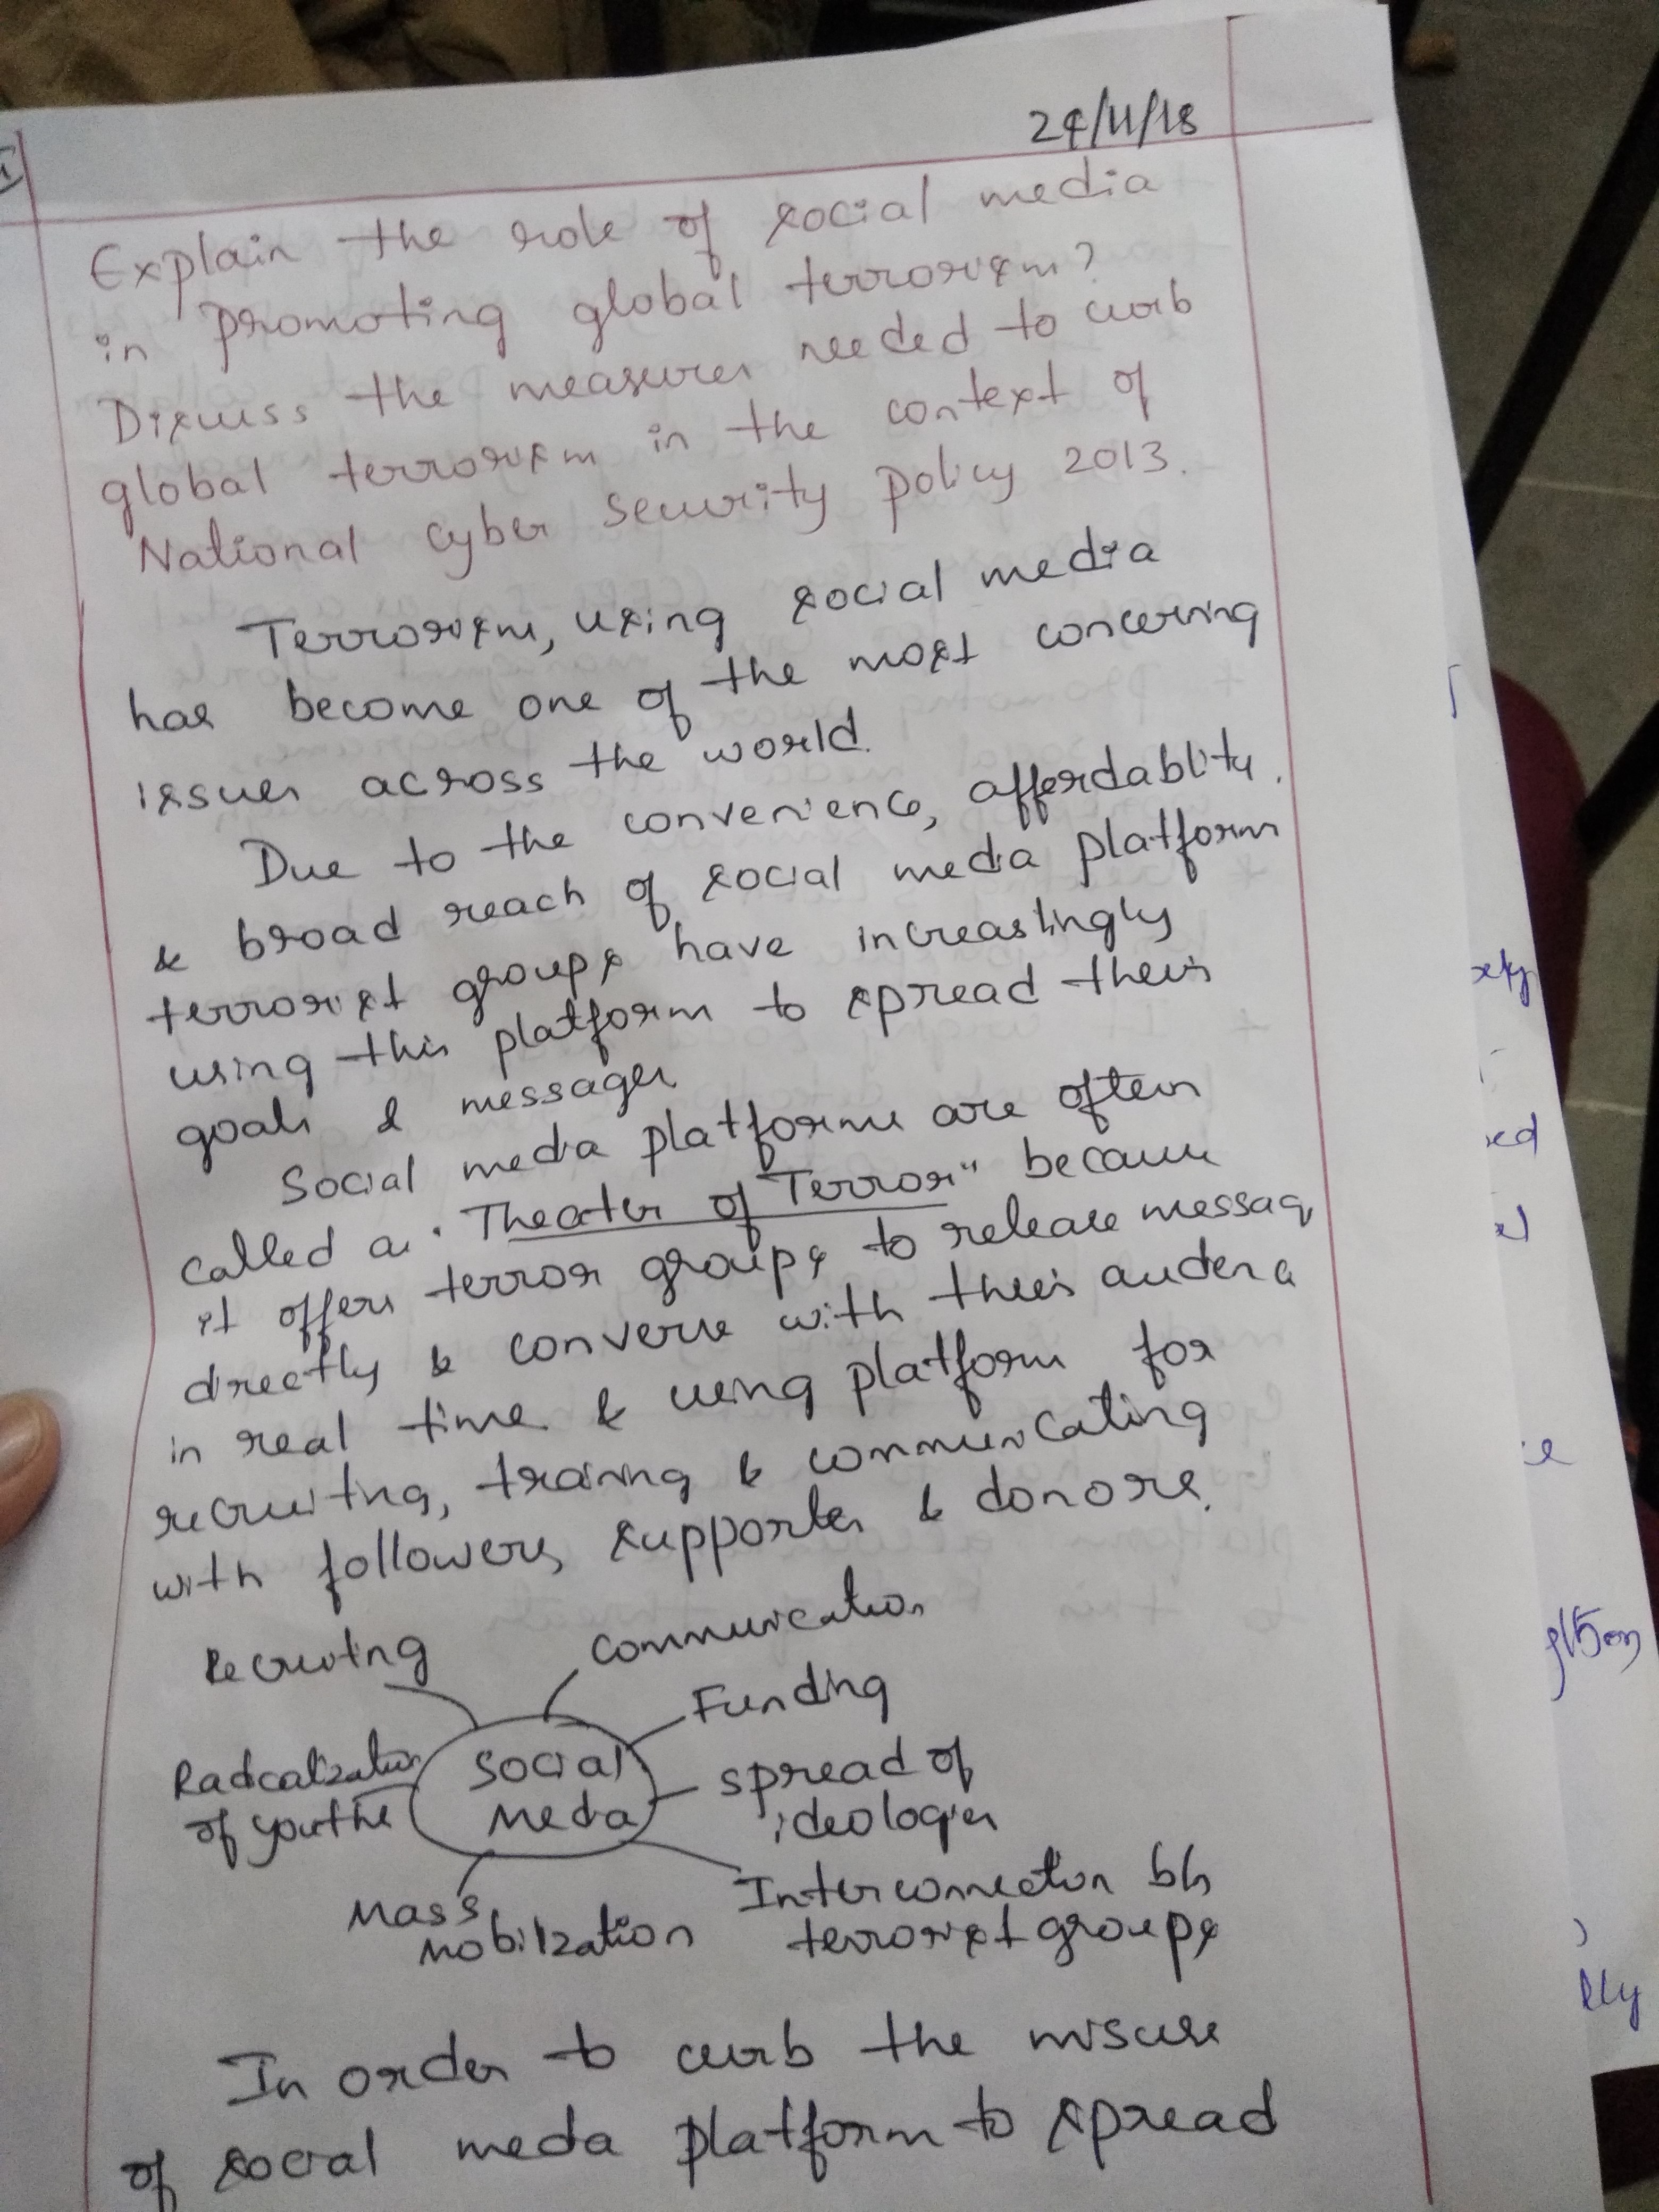 24/11/18
Explain the role of social media
in promoting global terrorism?
Discuss the measures needed to curb
global terrorism in the context of
National Cyber Security policy 2013.
Terrorism, using social media
has become one of the most concerning
issues across the world.
Due to the convenience, affordablity.
& broad reach of social media platform
terrorist groups have increastingly
using this platform to spread their
goals & messages
Social media platforms are often
called as "Theater of Terror" because
it offers terror groups to release messag
directly & converse with their audence
in real time & using platform for
recruiting, training & communicating
with followers, supporter & donors.
Recruiting
communication
Funding
Radicalization
of youths
Social
Media
spread of
ideologies
Interconnection b/w
terrorist groups
Mass
Mobilization
In order to curb the misuse
of social media platform to spread
xty
ed
el
ce
lly